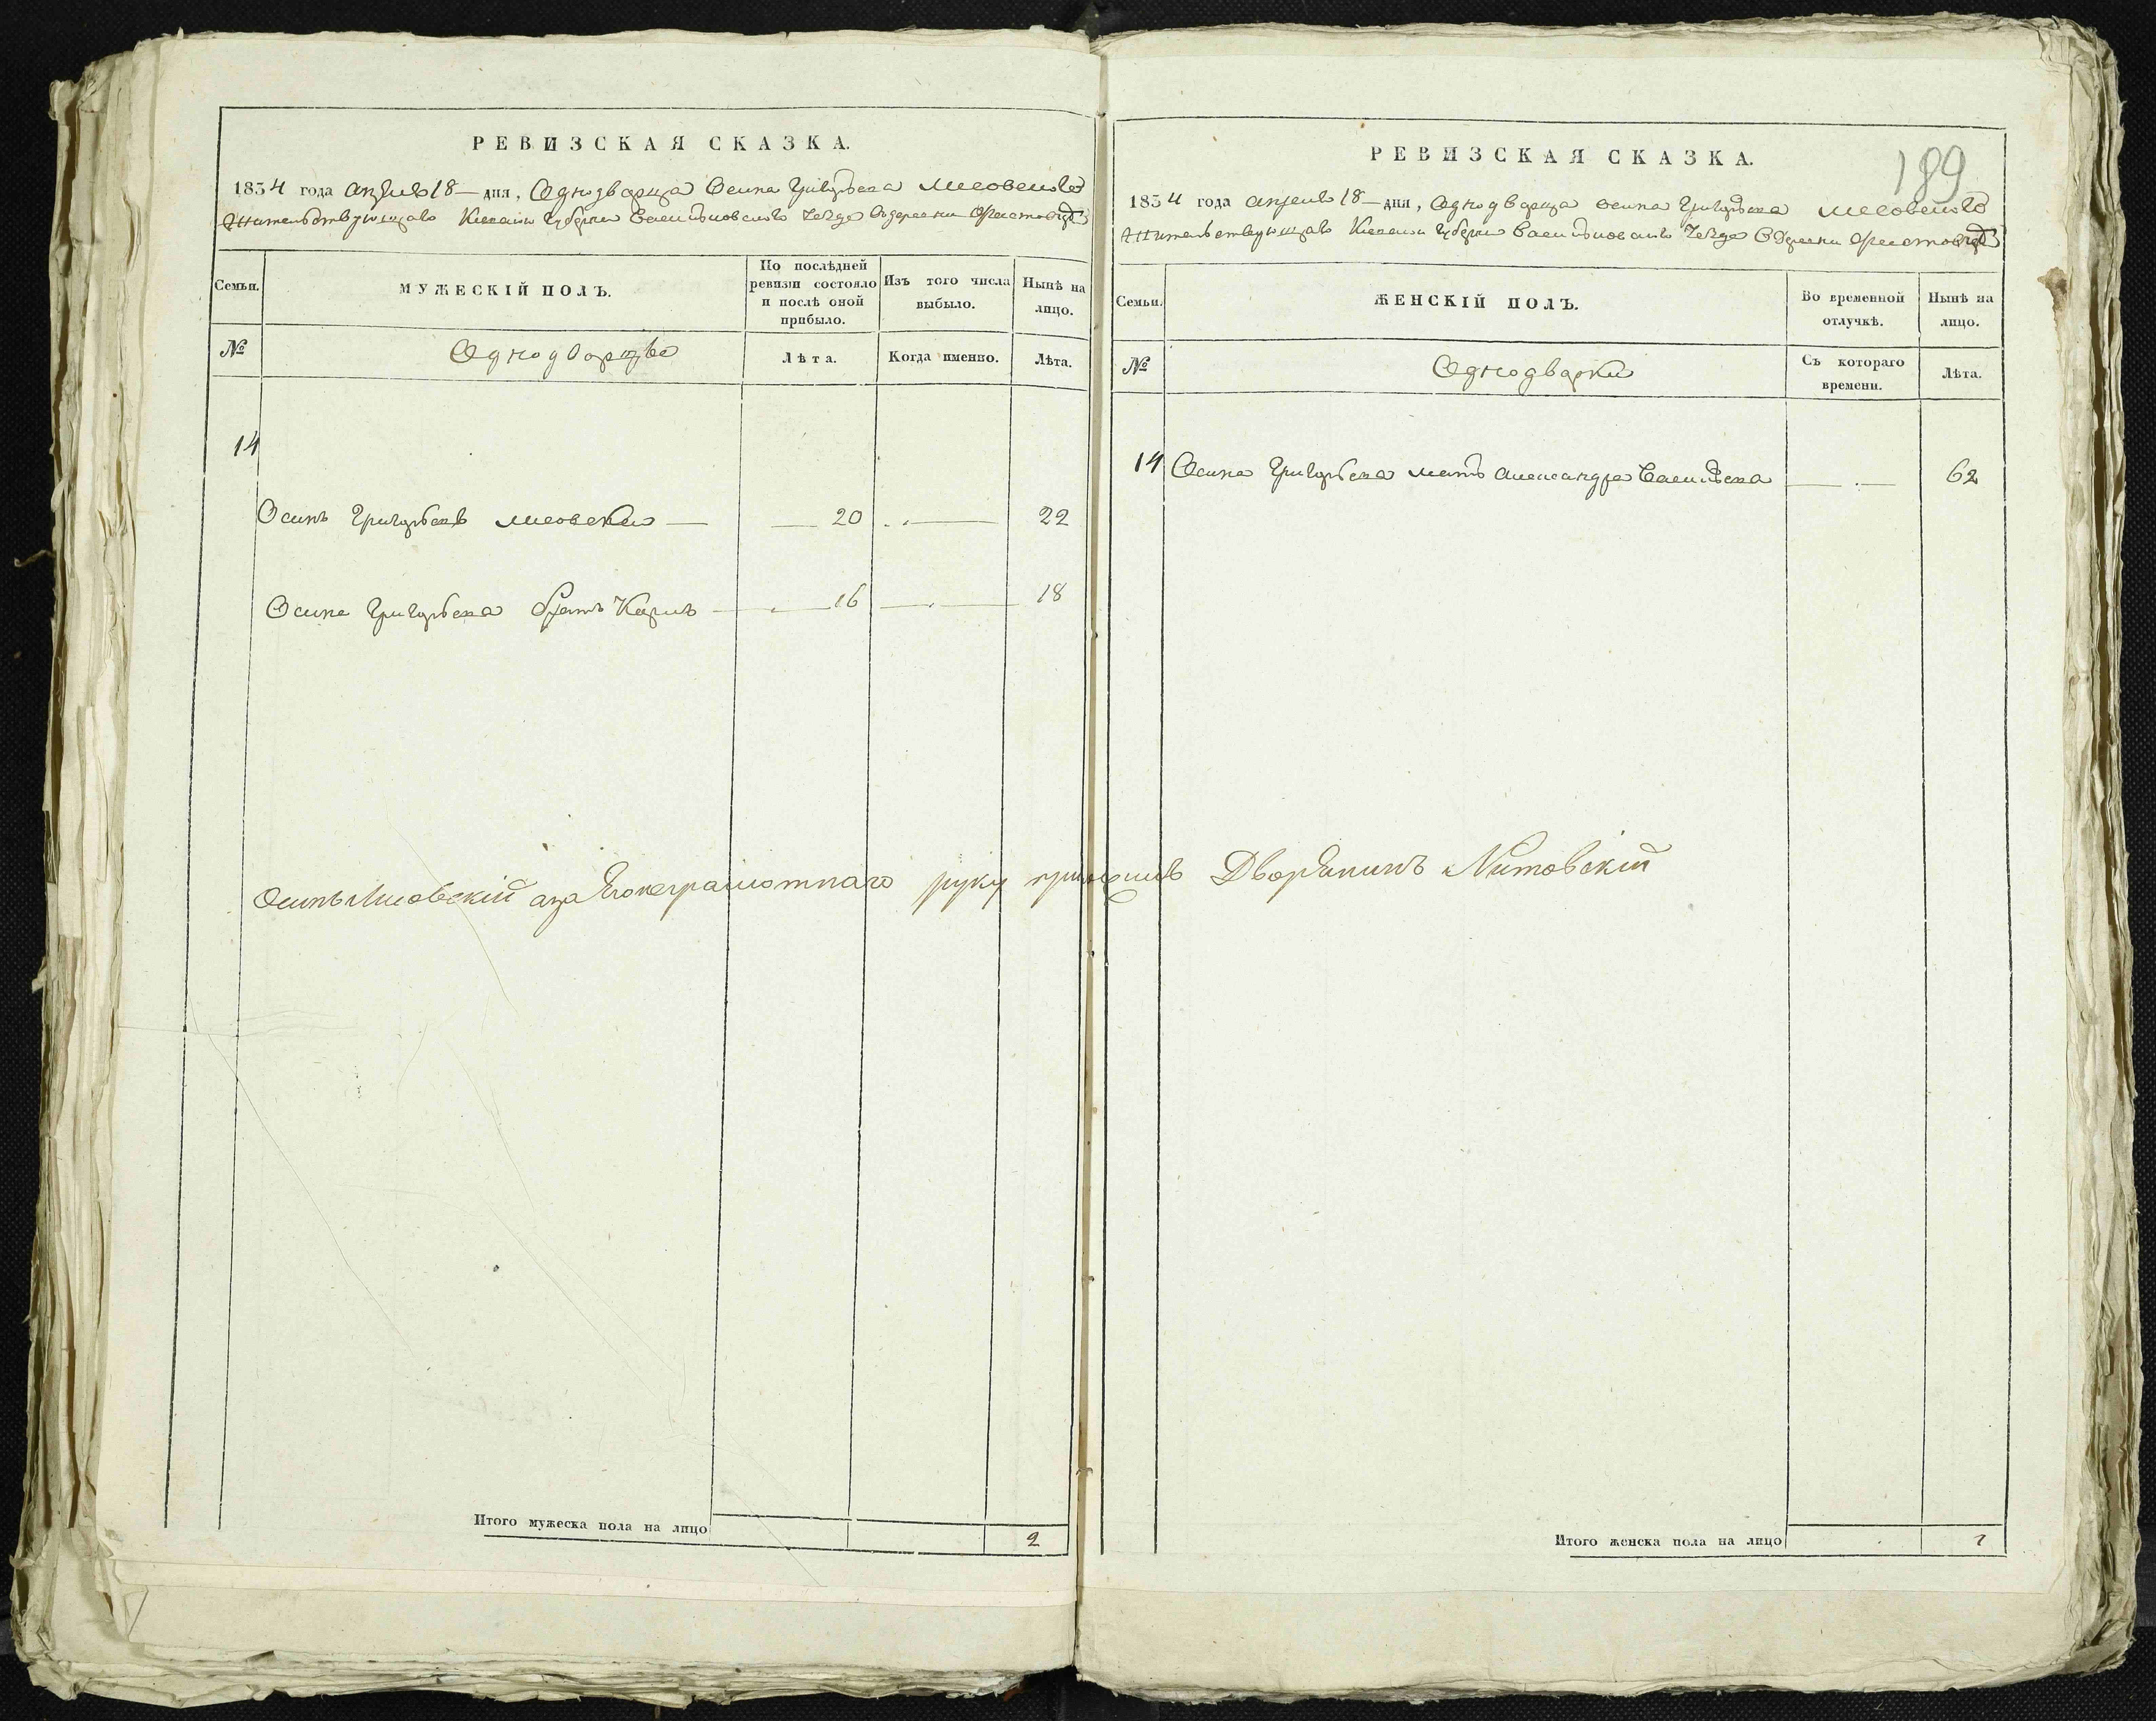 РЕВИЗСКАЯ СКАЗКА.
1834 года апреля 18 — дня, Однодворца Осипа Григорьева Лисовского
Жительствующаго Киевской Губернии Васильковского уезда в деревни
Семьи.
МУЖЕСКІЙ ПОЛЪ.
По послѣдней ревизіи состояло и послѣ оной прибыло.
Изъ того числа выбыло.
Нынѣ на лицо.
№
Однодворцы
Лѣта.
Когда именно.
Лѣта.
14
Осипъ Григорьевъ Лисовский — — 20 — 22
Осипа Григорьева братъ Карлъ — 16 — 18
Осипъ Лисовскій а за Его неграмотнаго руку приложилъ Дворянинъ Литовскій
Итого мужеска пола на лицо 2
189
РЕВИЗСКАЯ СКАЗКА.
1834 года апреля 18 — дня, Однодворца Осипа Григорьева Лисовского
Жительствующаго Киевской Губернии Васильковского уезда в деревни
Семьи.
ЖЕНСКІЙ ПОЛЪ.
Во временной отлучкѣ.
Нынѣ на лицо.
№
Однодворки
Съ котораго времени.
Лѣта.
14 Осипа Григорьева мать Александра Васильева — 62
Итого женска пола на лицо 1